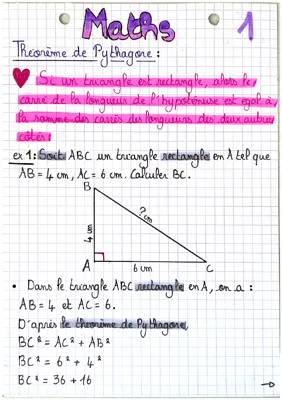 Maths
1
Théorème de Pythagore :
Si un triangle est rectangle, alors le
carré de la longueur de l'hypoténuse est égal à
la somme des carrés des longueurs des deux autres
côtés.
ex 1: Soit ABC un triangle rectangle en A tel que
AB = 4 cm, AC = 6 cm. Calculer BC.
B
? cm
4 cm
A
6 cm
C
• Dans le triangle ABC rectangle en A, on a :
AB = 4 et AC = 6.
D'après le théorème de Pythagore,
BC² = AC² + AB²
BC² = 6² + 4²
BC² = 36 + 16